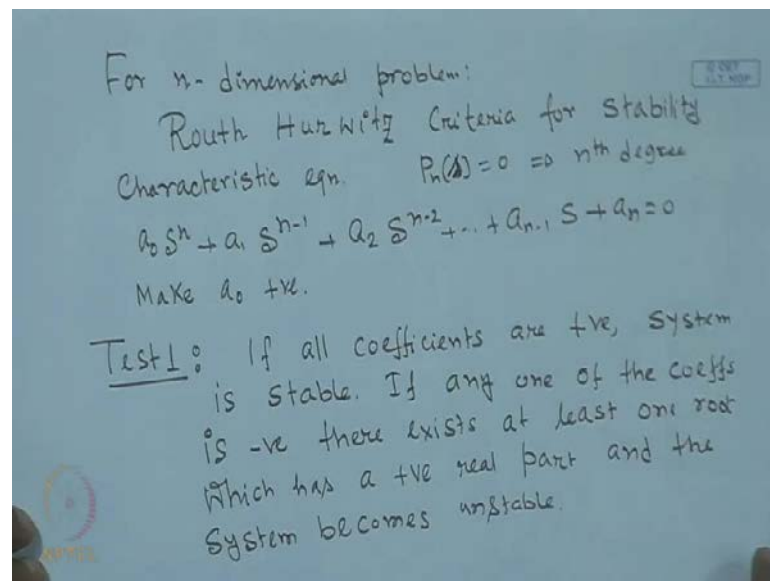 For n-dimensional problem:
© CET
I.I.T. KGP
Routh Hurwitz Criteria for Stability
Characteristic eqn. Pn(s) = 0 ⇒ nth degree
a₀ Sⁿ + a₁ Sⁿ⁻¹ + a₂ Sⁿ⁻² + ... + aₙ₋₁ S + aₙ = 0
Make a₀ +ve.
Test 1: If all coefficients are +ve, System
is stable. If any one of the coeffs
is -ve there exists at least one root
which has a +ve real part and the
System becomes unstable.
NPTEL